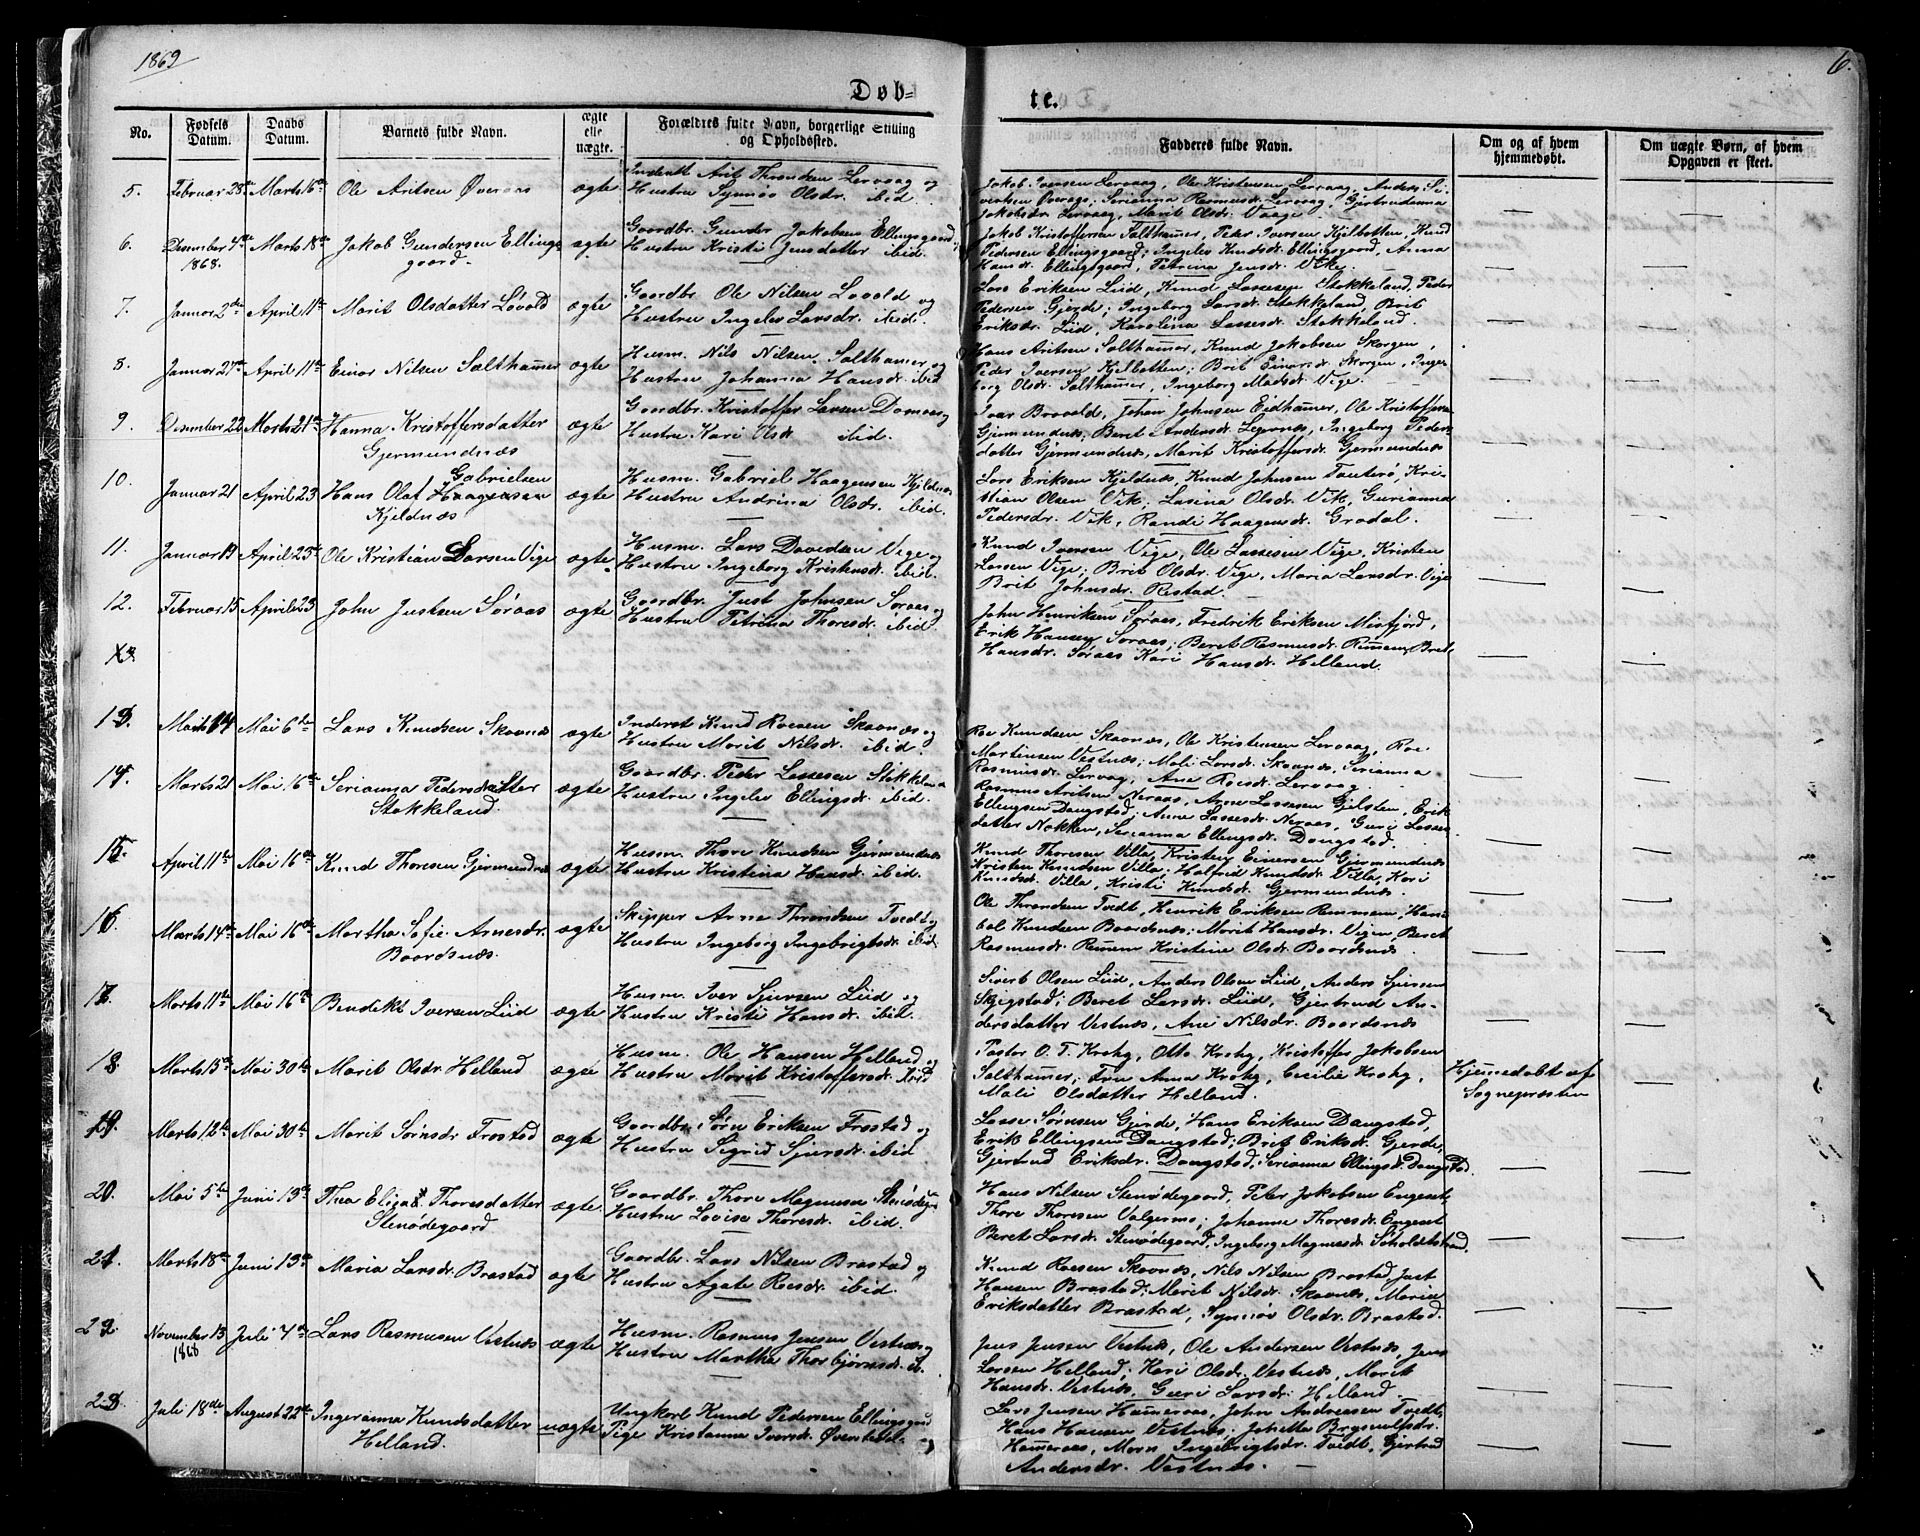 1869
6.
Døb-
te.
No.
Fødsels Datum.
Daabs Datum.
Barnets fulde Navn.
ægte elle uægte.
Forældres fulde Navn, borgerlige Stilling og Opholdssted.
Fadderes fulde Navn.
Om og af hvem hjemmedøbt.
Om uægte Børn, af hvem Opgaven er skeet.
5. Februar 28de Marts 16de Ole Aritsen Øveraas ægte Inderst Arit Throndsen Lervaag og
Hustru Synnøv Olsdr. ibid
Jakob Iversen Lervaag, Ole Kristensen Lervaag, Anders Si-
vertsen Øveraas, Serianna Rasmusdr. Lervaag, Gjertrudanna
Jakobsdr. Lervaag, Marit Olsdr. Vaage.
6. Desember 4de Marts 18de Jakob Gundersen Ellings- ægte Gaardbr. Gunder Jakobsen Ellingsgaard,
1868. gaard. Hustru Kristi Jensdatter ibid.
Jakob Kristoffersen Salthammer, Peter Iversen Kjelbotten, Knud
Pedersen Ellingsgaard; Ingelev Knudsdr. Ellingsgaard, Anna
Hansdr. Ellingsgaard, Petrina Jensdr. Vike.
7. Januar 2den April 11te Marit Olsdatter Løvold ægte Gaardbr. Ole Nilsen Løvold og
Hustru Ingelev Larsdr. ibid.
Lars Eriksen Liid, Knud Lassesen Stokkeland, Peder
Pedersen Gjerde; Ingeborg Larsdr. Stokkeland, Brit
Eriksdr. Liid, Karolina Lassesdr. Stokkeland.
8. Januar 27de April 11te Einar Nilsen Salthammer ægte Husm. Nils Nilsen Salthamer og
Hustru Johanna Hansdr. ibid
Hans Aritsen Salthamer, Knud Jakobsen Skorgen,
Peder Iversen Kjelbotten; Brit Einarsdr. Skorgen, Inge-
borg Olsdr. Salthamer, Ingeborg Madsdr. Vige.
9. Desember 22 Marts 21de Hanna Kristoffersdatter ægte Gaardbr. Kristoffer Larsen
Gjermundnæs Hustru Kari Olsdr. ibid.
Ivar Bravold, Johan Johnsen Eidhamer, Ole Kristoffersen
Gjermundnæs, Beret Andersdr. Legernes, Ingeborg Peders-
datter Gjermundnæs, Marit Kristoffersdr. Gjermundnæs
10. Januar 21 April 23 Hans Olaf Gabrielsen ægte Husm. Gabriel Haagensen Kjeldnæs
Haagensen Hustru Andrina Olsdr. ibid.
Kjeldnæs
Lars Eriksen Kjeldnæs, Knud Johnsen Tauterø, Kri-
stian Olsen Vik, Lasina Olsdr. Vik, Gurianna
Pedersdr. Vik, Randi Haagensdr. Grødal.
11. Januar 19 April 25de Ole Kristian Larsen Vige ægte Husm. Lars Davidsen Vige og
Hustru Ingeborg Kristensdr. ibid.
Knud Iversen Vige, Ole Lassesen Vige, Kristen
Larsen Vige; Brit Olsdr. Vige, Maria Larsdr. Vige
Brit Johnsdr. Restad.
12. Februar 15 April 23 John Justsen Søraas ægte Gaardbr. Just Johnsen Søraas og
Hustru Petrina Thoresdr. ibid.
John Henriksen Søraas, Fredrik Eriksen Misfjord,
Erik Hansen Søraas; Beret Rasmusdr. Remmem, Brit
Hansdr. Søraas Kari Hansdr. Helland.
13. Marts 14 Mai 6de Lars Knudsen Skavnæs ægte Inderst Knud Roesen Skavnæs og
Hustru Marit Nilsdr. ibid
Roe Knudsen Skavnæs, Ole Kristensen Lervaag, Roe
Martinsen Vestnæs; Mali Larsdr. Skavnæs, Serianna
Rasmusdr. Lervaag, Ane Roesdr. Lervaag.
14. Marts 21 Mai 16de Serianna Pedersdatter ægte Gaardbr. Peder Lassesen Stokkeland
Stokkeland Hustru Ingelev Ellingsdr. ibid.
Rasmus Aritsen Neraas, Arne Lassesen Gjelsten, Erik
Ellingsen Daugstad; Anne Lassesdr. Neraas, Guri Lasses-
datter Nakken, Serianna Ellingsdr. Daugstad.
15. April 11te Mai 16de Knud Thoresen Gjermundnæs ægte Husm. Thore Knudsen Gjermundnæs
Hustru Kristina Hansdr. ibid.
Knud Thoresen Villa, Kristen Einersen Gjermundnæs
Kristen Knudsen Villa; Halfrid Knudsdr. Villa, Kari
Knudsdr. Villa, Kristi Knudsdr. Gjermundnæs
16. Marts 14de Mai 16de Martha Sofie Arnesdr. ægte Skipper Arne Throndsen Tvedt og
Boordsnæs. Hustru Ingeborg Ingebrigtsdr. ibid.
Ole Throndsen Tvedt, Henrik Eriksen Remmem, Han-
bol Knudsen Boardsnæs; Marit Hansdr. Vigen, Beret
Rasmusdr. Remem Kristine Olsdr. Boardsnæs
17. Marts 11te Mai 16de Bendikt Iversen Liid ægte Husm. Iver Sjursen Liid og
Hustru Kristi Hansdr. ibid.
Sivert Olsen Liid, Anders Olsen Liid, Anders Sjursen
Skjegstad; Beret Larsdr. Liid, Gjertrud An-
dersdatter Vestnæs, Ane Nilsdr. Boordsnæs
18. Marts 15de Mai 30te Marit Olsdr. Helland ægte Husm. Ole Hansen Helland og
Hustru Marit Kristoffersdr. ibid
Pastor O. T. Krohg, Otto Krohg, Kristoffer Jakobsen
Salthamer; Fru Anna Krohg, Cecilie Krohg,
Mali Olsdatter Helland.
Hjemedøbt af
Sognepræsten
19. Marts 12te Mai 30te Marit Sørnsdr. Frostad ægte Gaardbr. Sørn Eriksen Frostad og
Hustru Sigrid Sjursdr. ibid
Lasse Sørnsen Gjerde, Hans Eriksen Daugstad,
Erik Ellingsen Daugstad; Brit Eriksdr. Gjerde,
Gjertrud Eriksdr. Daugstad, Serianna Ellingsdr. Daugstad.
20. Mai 5te Juni 13de Thea Eliza Thoresdatter ægte Gaardbr. Thore Magnussen Stenødegrd.
Stenødegaard Hustru Lovise Thoresdr. ibid.
Hans Nilsen Stenødegaard, Peter Jakobsen Engeset,
Thore Thoresen Valgermo; Johanna Thoresdr. Engeset
Beret Larsdr. Stenødegaard, Ingeborg Magnusdr. Søholdtstrand.
21. Marts 18de Juni 13de Maria Larsdr. Brastad ægte Gaardbr. Lars Nilsen Brastad og
Hustru Agate Roesdr. ibid.
Knud Roesen Skavnæs, Nils Nilsen Brastad, Just
Hansen Brastad; Marit Nilsdr. Skavnæs, Maria
Eriksdatter Brastad, Synnøv Olsdr. Brastad.
22. November 13 Juli 4de Lars Rasmusen Vestnæs ægte Husm. Rasmus Jensen Vestnæs og
1868 Hustru Martha Thorbjørnsdr. ib.
Jens Jensen Vestnæs, Ole Andersen Vestnæs, Jens
Larsen Helland; Kari Olsdr. Vestnæs, Marit
Hansdr. Vestnæs, Guri Larsdr. Helland.
23. Juli 18de August 22de Ingeranna Knudsdatter uægte Ungkarl Knud Pedersen Ellingsgrd
Helland. Pige Kristianna Iversdr.
Lars Jensen Hameraas, John Andreasen Tvedt,
Hans Hansen Vestnæs; Johetta Brynulfsdr.
Hameraas, Maren Ingebrigtsdr. Tvedt, Gjertrud
Andersdr. Vestnæs.